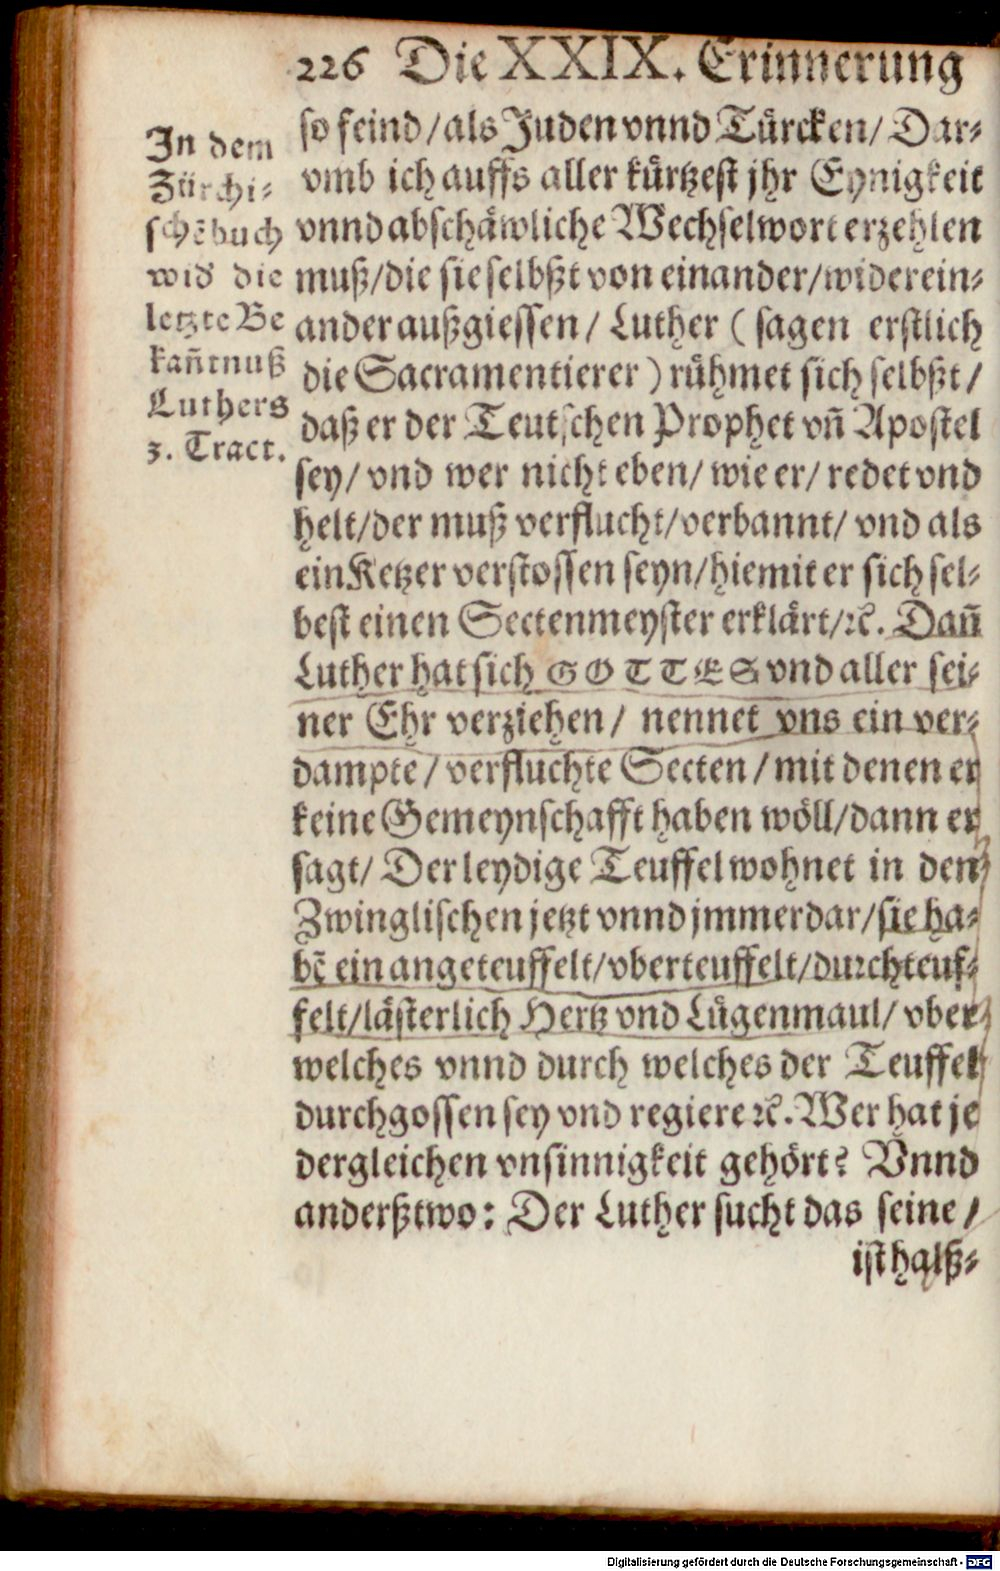 226 Die XXIX. Erinnerung
In dem
Zürchi⸗
schẽ buch
wid die
letzte Be
kañtnuß
Luthers
3. Tract.
so feind/als Juden vnnd Türcken/ Dar⸗
vmb ich auffs aller kürtzest jhr Eynigkeit
vnnd abschäwliche Wechselwort erzehlen
muß/die sie selbßt von einander/wider ein⸗
ander außgiessen/ Luther ( sagen erstlich
die Sacramentierer ) rühmet sich selbßt/
daß er der Teutschen Prophet vñ Apostel
sey/ vnd wer nicht eben/ wie er/ redet vnd
helt/der muß verflucht/verbannt/ vnd als
ein Ketzer verstossen seyn/hiemit er sich sel⸗
best einen Sectenmeyster erklärt/ꝛc̃. Dañ
Luther hat sich GOTTES vnd aller sei⸗
ner Ehr verziehen/ nennet vns ein ver⸗
dampte/verfluchte Secten/mit denen er
keine Gemeynschafft haben wöll/dann er
sagt/ Der leydige Teuffel wohnet in den
Zwinglischen jetzt vnnd jmmerdar/sie ha⸗
bẽ ein angeteuffelt/vberteuffelt/durchteuf⸗
felt/lästerlich Hertz vnd Lügenmaul/ vber
welches vnnd durch welches der Teuffel
durchgossen sey vnd regiere ꝛc̃. Wer hat je
dergleichen vnsinnigkeit gehört? Vnnd
anderßtwo: Der Luther sucht das seine/
ist halß⸗
Digitalisierung gefördert durch die Deutsche Forschungsgemeinschaft - DFG